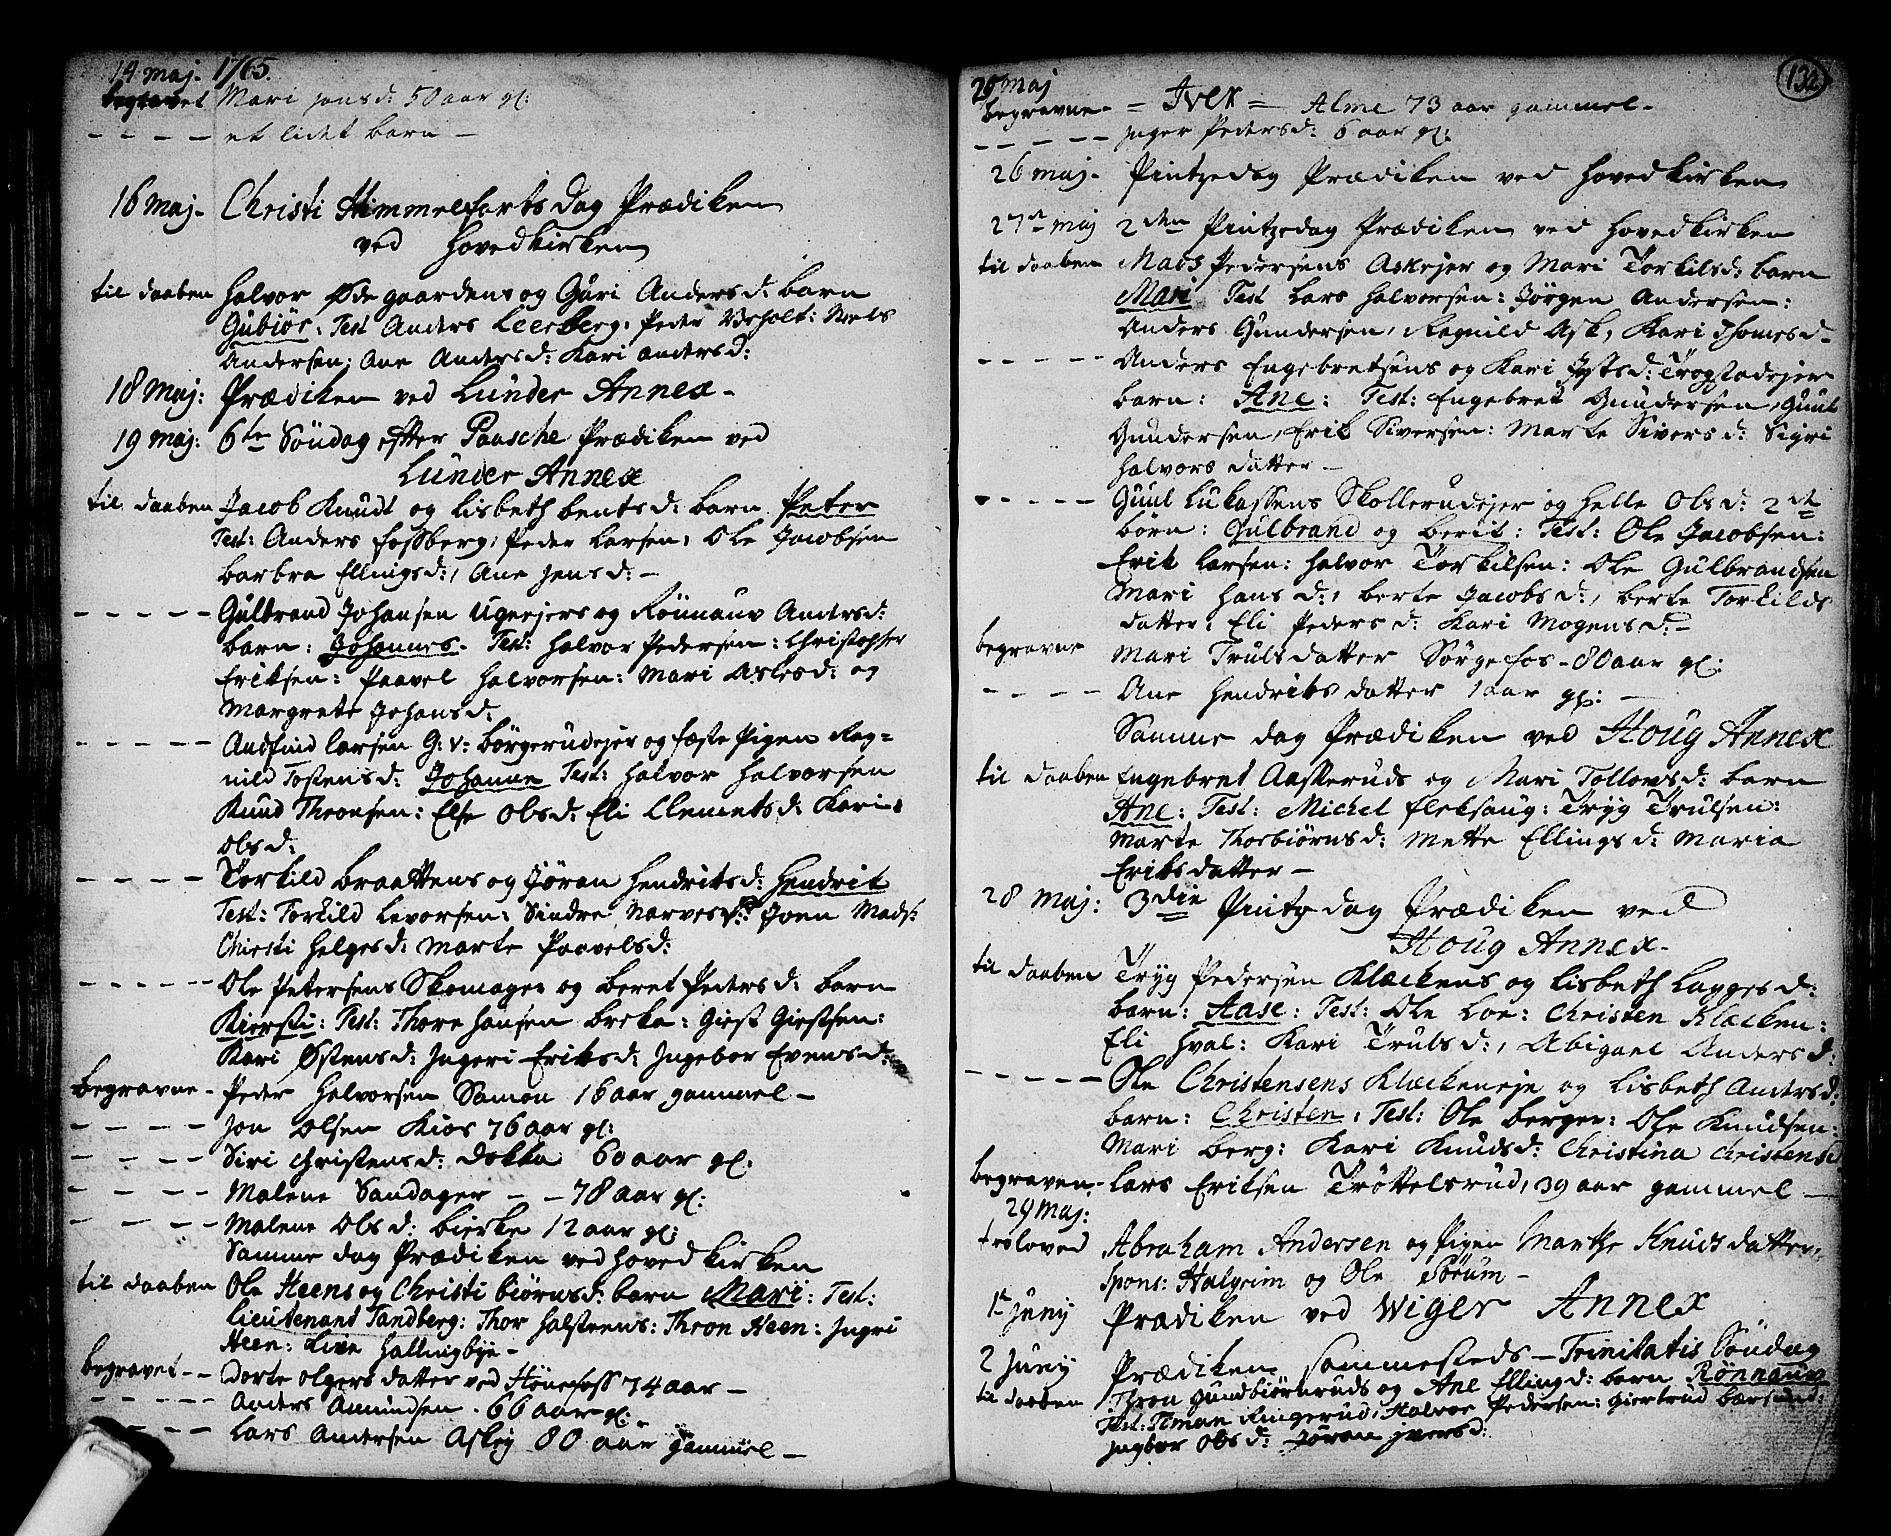 14 maj. 1765.
begravet Mari Jensd: 50 aar gl:
et lidet barn
16 maj. Christi Himmelfarts Dag Prædiken
ved Hovedkirken
til daaben Halvor Ødegaardens og Guri Andersd: barn
Gubiør: Test Anders Leerberg: Peder Veholt: Niels
Andersen: Ane Andersd: Kari Andersd:
18 maj: Prædiken ved Lunder Annex
19 maj: 6te Söndag efter Paasche Prædiken ved
Lunder Annex
til daaben Jacob Knudt og Lisbeth bentsd: barn Peter
Test: Anders Fossberg: Peder Larsen: Ole Jacobsen
Barbra Ellingsd:, Ane Jensd:
Gulbrand Johansen Ugerejers og Rönnauv Andersd:
barn: Johannes. Test: Halvor Pedersen: Christopher
Eriksen: Paavel Halvorsen: Mari Aslesd: og
Margrete Johansd:
Audfind Larsen G: v: Börgerudejer og fæste Pigen Rag=
nild Tostensd: Johanne Test: Halvor Halvorsen
Knud Thronsen: Else Olsd: Eli Clemetsd: Kari
Olsd:
Torkild Braattens og Jöran Hendriksd: Hendrik
Test: Torkild Levorsen: Sindre Narvesd: Joen Mads:
Chiersti Helgesd: Marte Paavelsd:
Ole Petersens Skomager og Beret Pedersd: barn
Kiersti: Test: Thore Hansen Breka: Giest Giestsen:
Kari Østensd: Ingeri Eriksd: Ingebor Evensd:
begravne Peder Halvorsen Samon 16 aar gammel
Jon Olsen Kios 76 aar gl:
Siri Christensd: Dokka 60 aar gl:
Malene Sandager 78 aar gl:
Malene Olsd: Bierke 12 aar gl:
Samme dag Prædiken ved Hovedkirken
til daaben Ole Heens og Christi Biörnsd: barn Mari: Test:
Lieutenant Tandberg: Thor Halstens: Thron Heen: Ingri
Heen: Live Hallingbye
begravet Dorte Olgersdatter ved Hönefoss 74 aar
Anders Amundsen 66 aar gl:
Lars Andersen Askey 80 aar gammel
132
20 maj
begravne = Iver = Alme 73 aar gammel
Inger Pedersd: 6 aar gl:
26 maj. Pintzedag Prædiken ved Hovedkirken
27de maj 2den Pintzedag Prædiken ved Hovedkirken
til daaben Mads Pedersens Askejer og Mari Torkilsd: barn
Mari Test Lars Halvorsen: Jörgen Andersen:
Anders Gundersen, Ragnild Ask, Kari Thomesd
Anders Engebretsens og Kari Jostsd: Trogstadejer
barn: Ane: Test: Engebret Gundersen, Guul
Gundersen, Erik Siversen: Marte Siversd: Sigri
Halvorsdatter
Guul Lukassens Skollerudejer og Helle Olsd: 2de
börn: Gulbrand og Berit: Test: Ole Jacobsen:
Erik Larsen: Halvor Torkilsen: Ole Gulbrandsen
Mari Hansd:, Berte Jacobsd:, Berte Torkilds
datter: Eli Pedersd: Kari Mogensd:
begravne Mari Trulsdatter Sörgefos 80 aar gl:
Ane Hendriksdatter 1 aar gl:
Samme dag Prædiken ved Houg Annex
til daaben Engebret Aaskeruds og Mari Tollovsd: barn
Ane: Test: Michel Fleksaug: Tryg Trulsen:
Marte Thorbiörnsd: Mette Ellingsd: Maria
Eriksdatter
28 maj: 3die Pintzdag Prædiken ved
Houg Annex
til daaben Tryg Pedersen Klækkens og Lisbeth Laggesd:
barn: Aase: Test: Ole Loe: Christen Klækken:
Eli Hval: Kari Trulsd:, Abigael Andersd:
Ole Christensens Klækkeneje og Lisbeth Andersd:
barn: Christen: Test: Ole Berger: Ole Knudsen:
Mari Berg: Kari Knudsd: Christina Christensd
begraven Lars Eriksen Tröttelsrud, 39 aar gammel
29 maj:
troloved Abraham Andersen og Pigen Marthe Knudsdatter,
Spons: Halgrim og Ole Sörum
1te Junij Prædiken ved Wiger Annex
2 Junij Prædiken sammesteds Trinitatis Söndag
til daaben Thron Gundbiörnruds og Ane Ellingd: barn Rönnauv
Test: Timan Ringerud, Halvor Pedersen: Giertrud Bærsund:
Ingbor Olsd: Jöran Iversd: